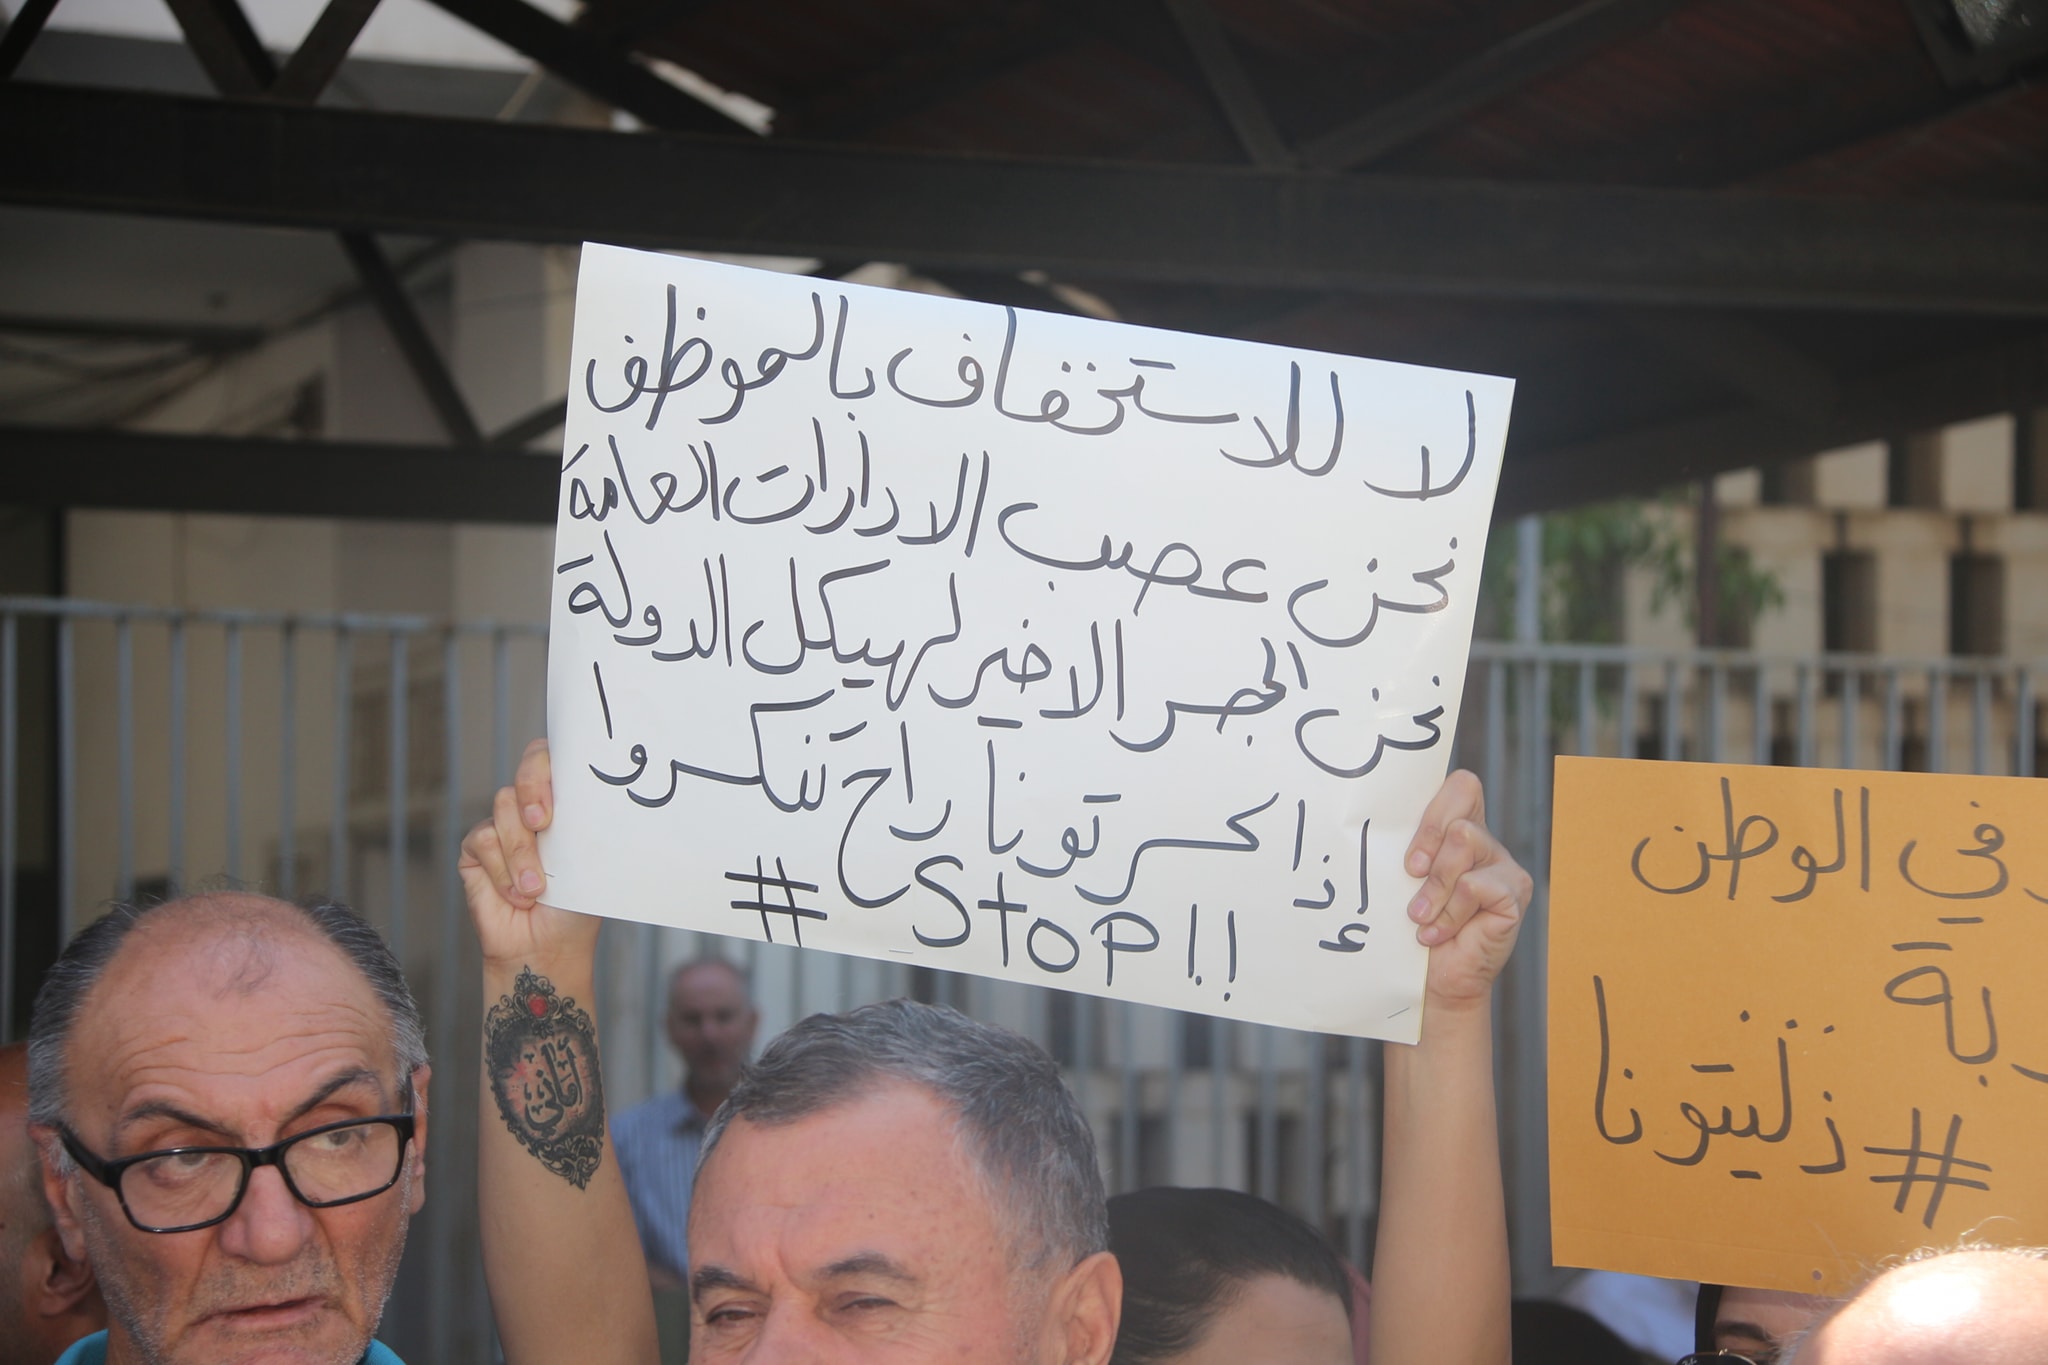 لا للاستخفاف بالموظف
نحن عصب الادارات العامة
نحن الحجر الاخير لهيكل الدولة
إذا كسرتونا راح تنكسروا
# Stop!!
في الوطن
#ذليتونا
أماني